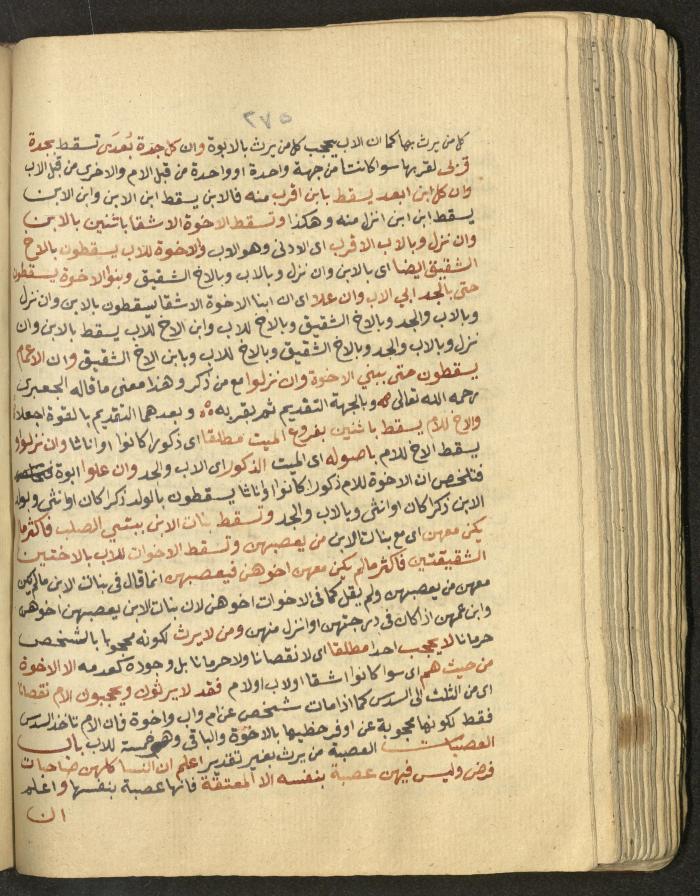 ٢٧٥
كل من يرث بها كما ان الاب يحجب كل من يرث بالابوة وان كل جدة بُعدَى تسقط بجدة
قربى لقربها سوا كانتا من جهة واحدة او واحدة من قبل الام والاخرى من قبل الاب
وان كل ابن ابعد يسقط بابن اقرب منه فالابن يسقط ابن الابن وابن الابن
يسقط ابن ابن انزل منه وهكذا وتسقط الاخوة الاشقا باثنين بالابن
وان نزل وبالاب الاقرب اى الادنى وهو الاب والاخوة للاب يسقطون بالاخ
الشقيق ايضا اى بالابن وان نزل وبالاب وبالاخ الشقيق وبنو الاخوة يسقطون
حتى بالجد ابي الاب وان علا اى ان ابنا الاخوة الاشقا يسقطون بالابن وان نزل
وبالاب والجد وبالاخ الشقيق وبالاخ للاب وابن الاخ للاب يسقط بالابن وان
نزل وبالاب والجد وبالاخ الشقيق وبالاخ للاب وبابن الاخ الشقيق وان الاعمام
يسقطون حتى ببني الاخوة وان نزلوا مع من ذكر وهذا معنى ما قاله الجعبرى
رحمه الله تعالى وبالجهة التقديم ثم بقربه وبعدهما التقديم بالقوة اجعلا
والاخ للام يسقط باثنين بفروع الميت مطلقا اى ذكورا كانوا او اناثا وان نزلوا
يسقط الاخ للام باصوله اى الميت الذكور اى الاب والجد وان علوا ابوة
فتلخص ان الاخوة للام ذكورا كانوا او اناثا يسقطون بالولد ذكرا كان او انثى وبولد
الابن ذكرا كان او انثى وبالاب والجد وتسقط بنات الابن ببنتي الصلب فاكثر ما
يكن معهن اى مع بنات الابن من يعصبهن وتسقط الاخوات للاب بالاختين
الشقيقتين فاكثر مالم يكن معهن اخوهن فيعصبهن انما قال في بنات الابن مالم يكن
معهن من يعصبهن ولم يقل كما في الاخوات اخوهن لان بنات الابن يعصبهن اخوهن
وابن عمهن اذا كان في درجتهن او انزل منهن ومن لا يرث لكونه محجوبا بالشخص
حرمانا لا يحجب احدا مطلقا اى لا نقصانا ولا حرمانا بل وجوده كعدمه الا الاخوة
من حيث هم اى سوا كانوا اشقا او لاب او لام فقد لا يرثون ويحجبون الام نقصانا
اى من الثلث الى السدس كما اذا مات شخص عن ام واب واخوة فان الام تاخذ السدس
فقط لكونها محجوبة عن اوفر حظيها بالاخوة والباقى وهو خمسة للاب باب
العصبات العصبة من يرث بغير تقدير اعلم ان النسا كلهن صاحبات
فرض وليس فيهن عصبة بنفسه الا المعتقة فانها عصبة بنفسها واعلم
ان